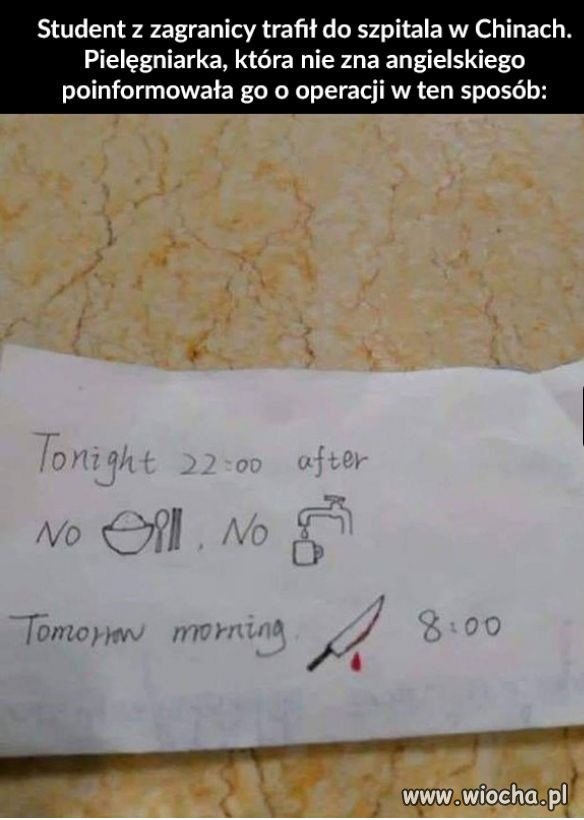 Student z zagranicy trafił do szpitala w Chinach.
Pielęgniarka, która nie zna angielskiego
poinformowała go o operacji w ten sposób:
Tonight 22:00 after
No , No
Tomorrow morning. 8:00
www.wiocha.pl